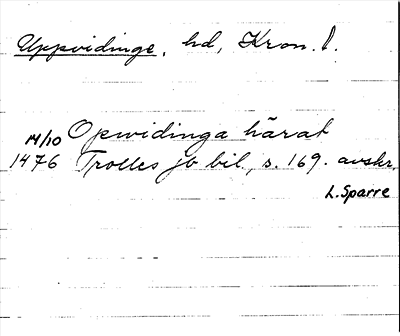 Uppvidinge, hd, Kron. l.
14/10 Opwidinga härat
1476 Trolles jb bil., s. 169. avskr.
L. Sparre